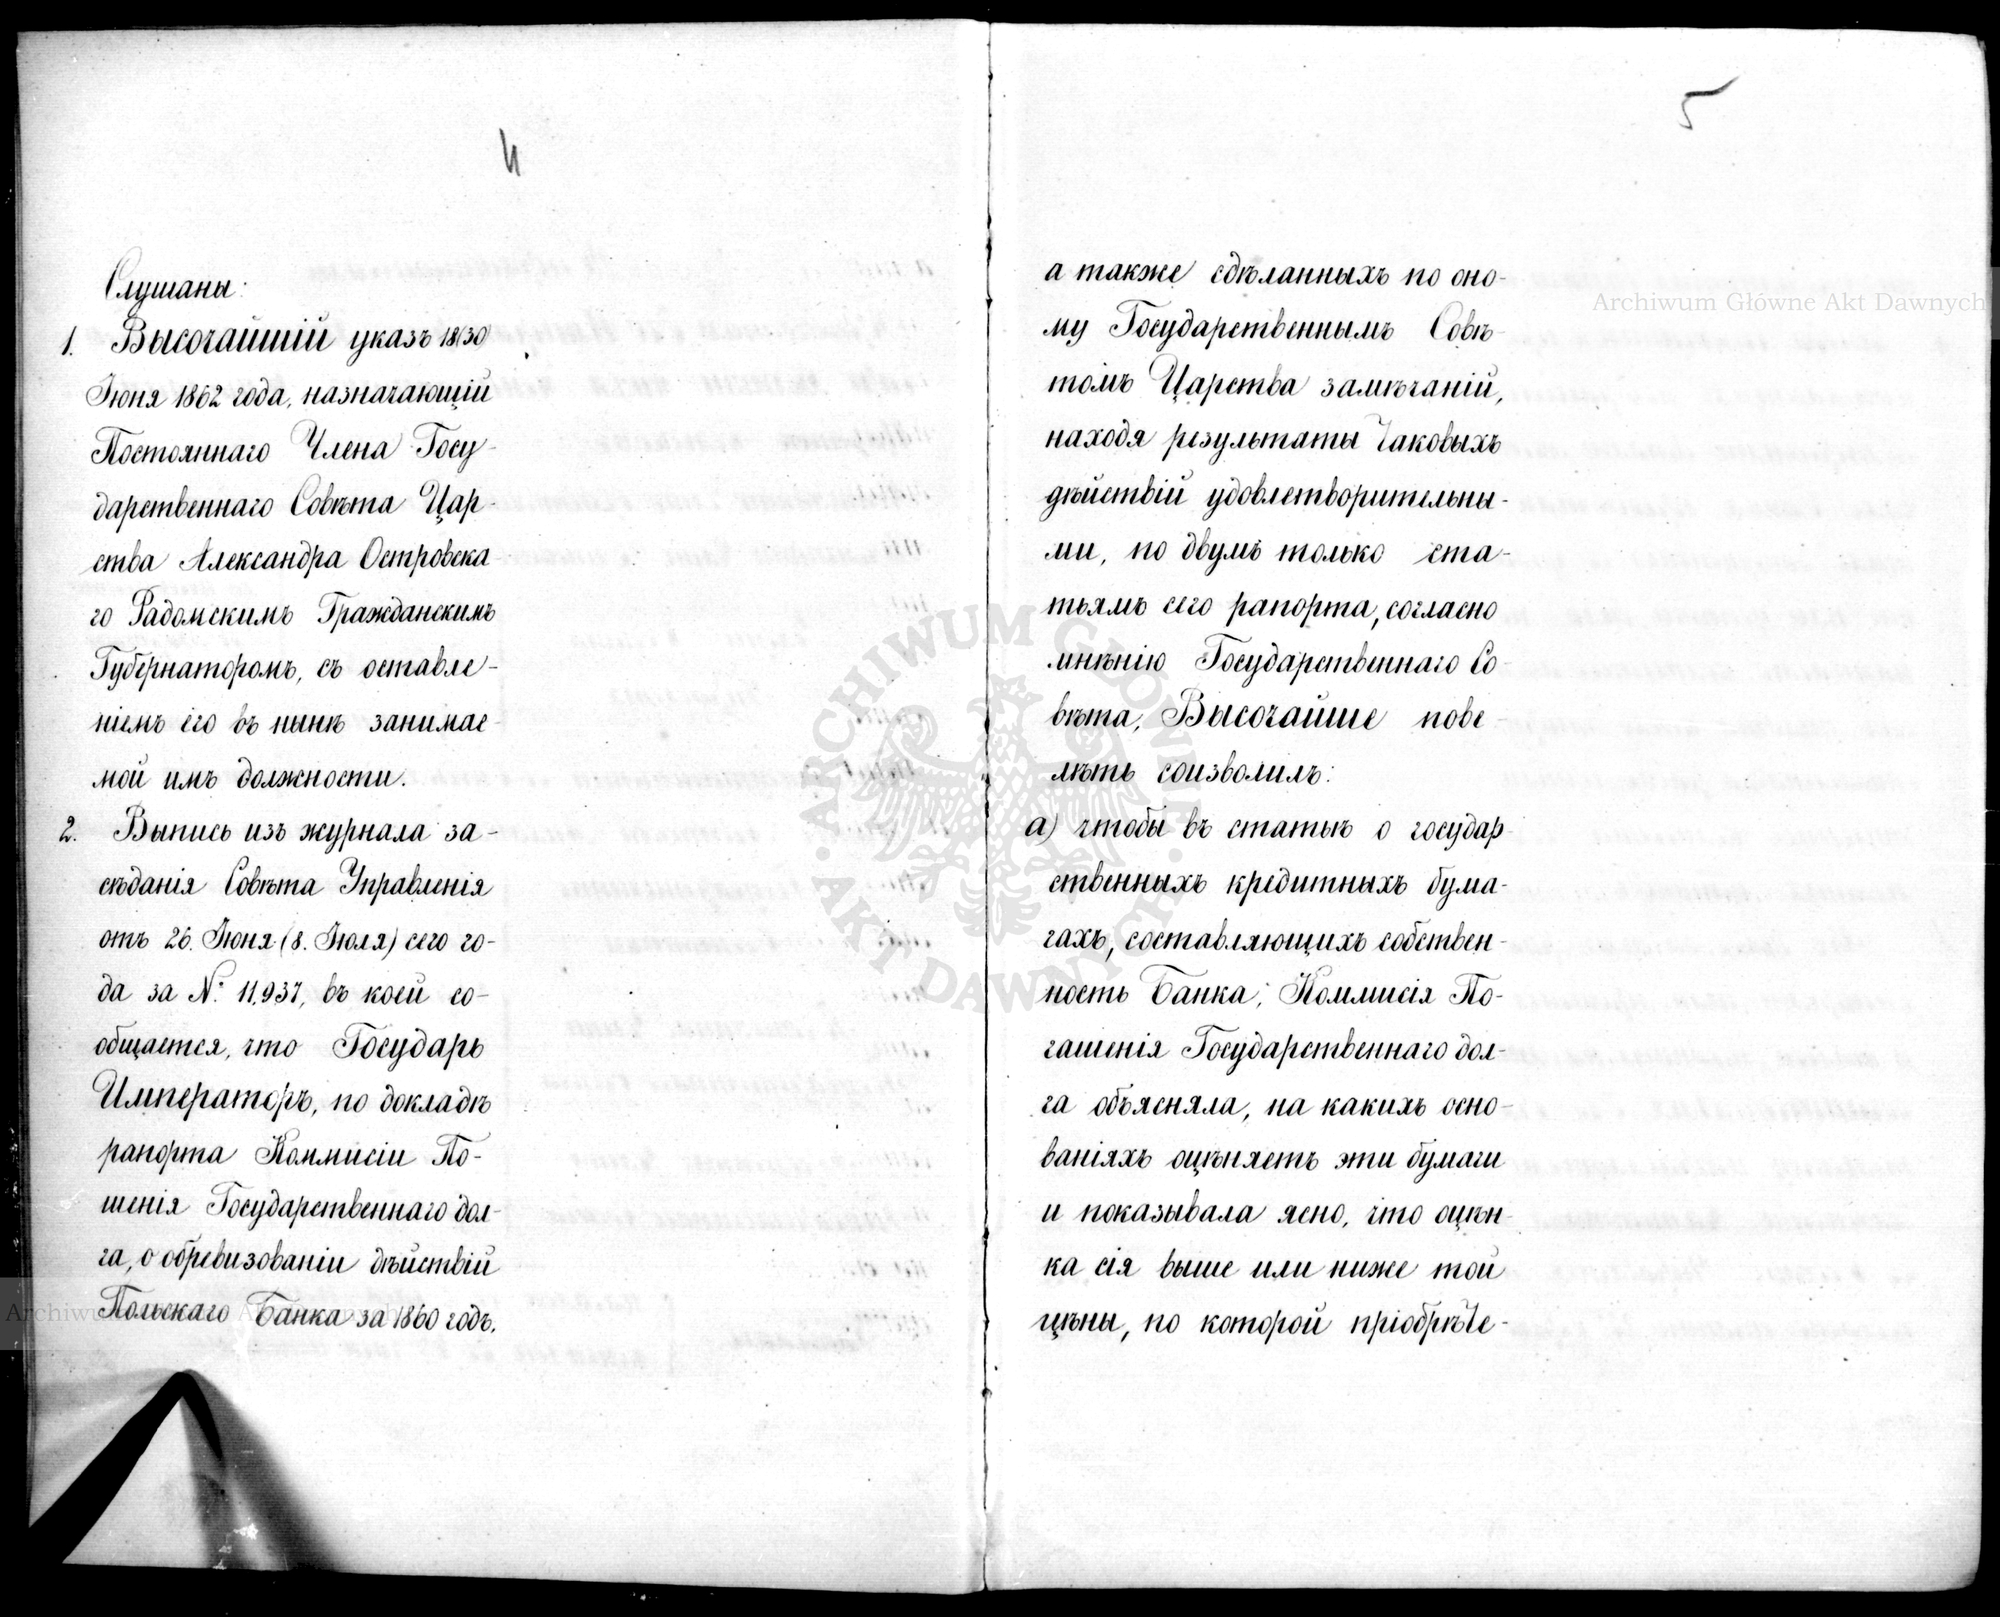 4
Слушаны:
1. Высочайшій указъ 18/30
Іюня 1862 года, назначающій
Постояннаго Члена Госу-
дарственнаго Совѣта Цар-
ства Александра Островска-
го Радомскимъ Гражданскимъ
Губернаторомъ, съ оставле-
ніемъ его въ нынѣ занимае-
мой имъ должности.
2. Выпись изъ журнала за-
сѣданія Совѣта Управленія
отъ 26. Іюня (8. Іюля) сего го-
да за №: 11,937, въ коей со-
общается, что Государь
Императоръ, по докладѣ
рапорта Коммисіи По-
шенія Государственнаго дол-
га, о обревизованіи дѣйствій
Польскаго Банка за 1860 годъ,
5
а также сдѣланныхъ по оно-
му Государственнымъ Совѣ-
томъ Царства замѣчаній,
находя результаты таковыхъ
дѣйствій удовлетворительны-
ми, по двумъ только ста-
тьямъ сего рапорта, согласно
мнѣнію Государственнаго Со-
вѣта, Высочайше пове-
лѣть соизволилъ:
а) чтобы въ статьѣ о государ-
ственныхъ кредитныхъ бума-
гахъ, составляющихъ собствен-
ность Банка, Коммисія По-
гашенія Государственнаго дол-
га объясняла, на какихъ осно-
ваніяхъ оцѣняетъ эти бумаги
и показывала ясно, что оцѣн-
ка сія выше или ниже той
цѣны, по которой пріобрѣте-
Archiwum Główne Akt Dawnych
Archiwum Główne Akt Dawnych
ARCHIWUM GŁÓWNE
AKT DAWNYCH